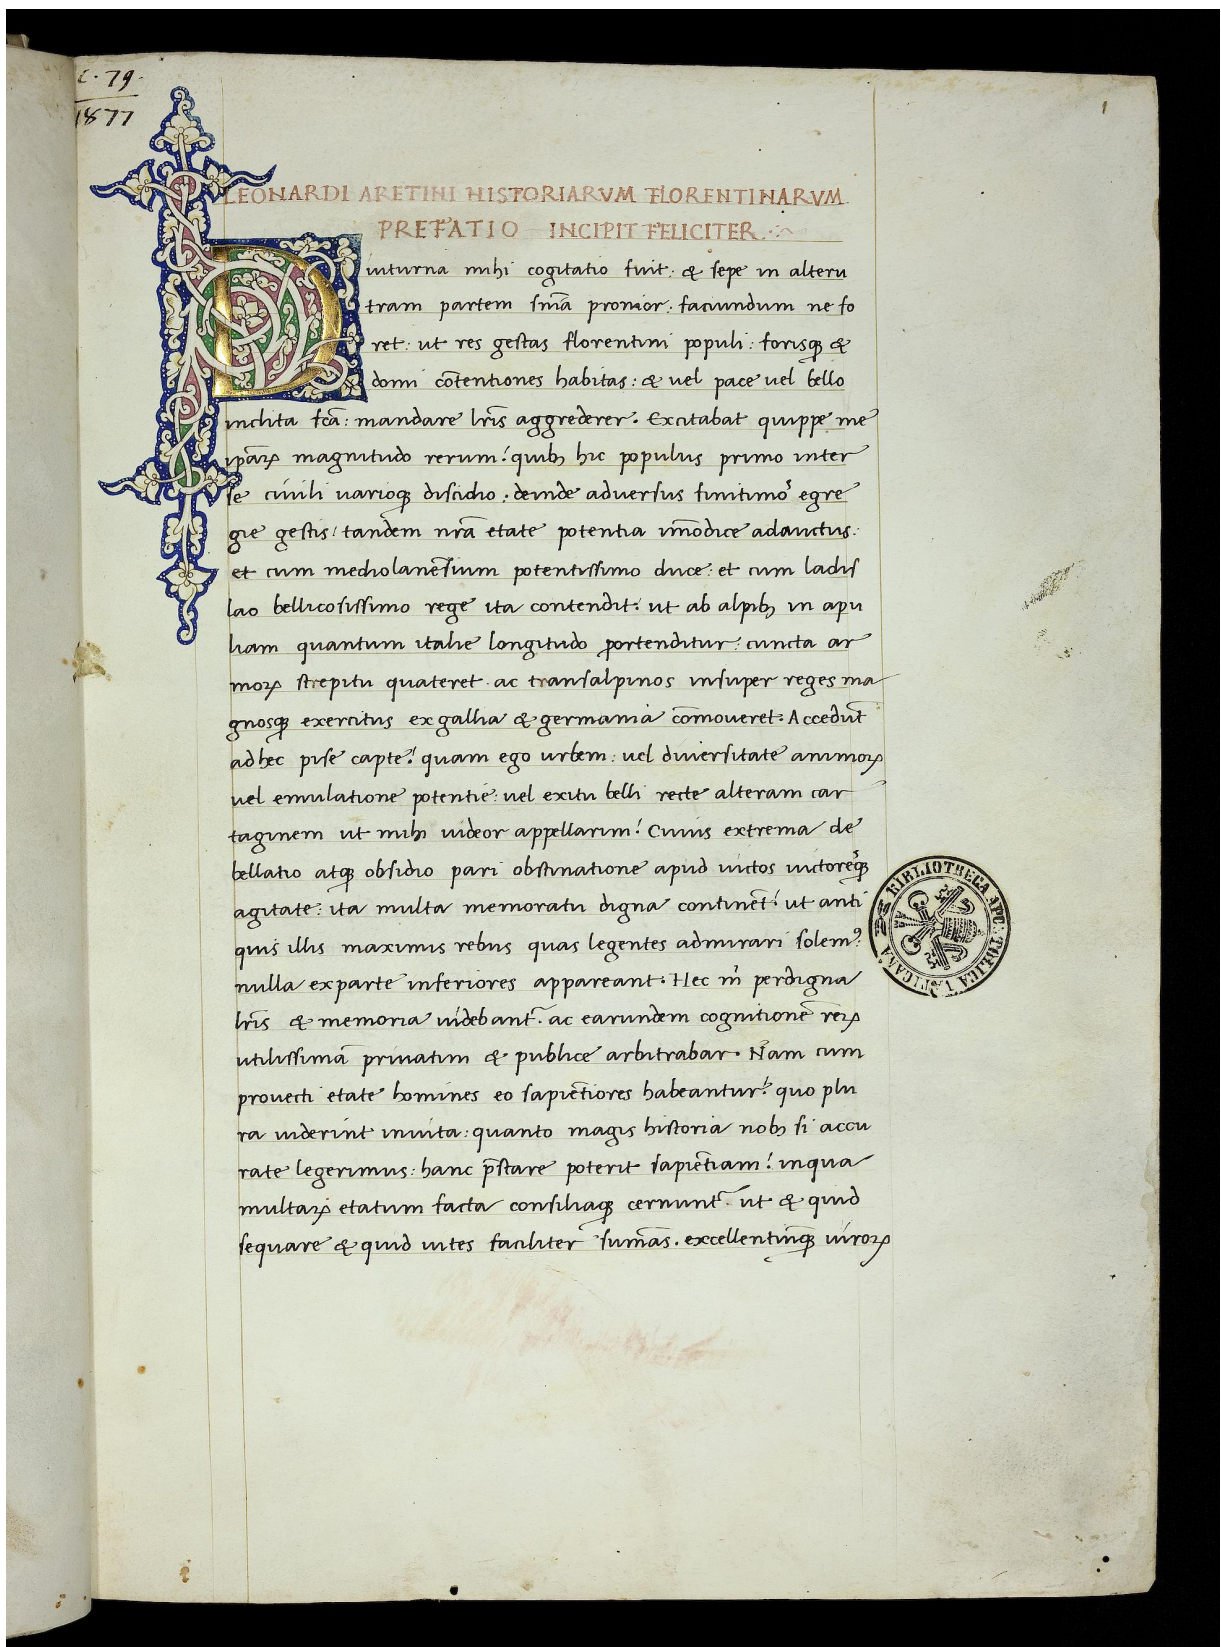 C. 79.
1877
1
LEONARDI ARETINI HISTORIARVM FLORENTINARVM
PREFATIO INCIPIT FELICITER.
Diuturna mihi cogitatio fuit: & sepe in alteru
tram partem sn̄ia pronior: faciundum ne fo
ret: ut res gestas florentini populi: forisqꝫ &
domi cōtentiones habitas: & uel pace uel bello
inclita fc̄a: mandare lr̄is aggrederer. Excitabat quippe me
ip̄aꝝ magnitudo rerum: quibꝫ hic populus primo inter
se ciuili uarioqꝫ discidio: deinde aduersus finitimoꝰ egre
gie gestis: tandem nr̄a etate potentia īmodice adauctus:
et cum mediolanēsium potentissimo duce: et cum ladis
lao bellicosissimo rege ita contendit: ut ab alpibꝫ in apu
liam quantum italie longitudo ꝓrtenditur: cuncta ar
moꝝ strepitu quateret. ac transalpinos insuper reges ma
gnosqꝫ exercitus ex gallia & germania cōmoueret. Accedūt
ad hec pise capte: quam ego urbem: uel diuersitate animoꝝ
uel emulatione potentie: uel exitu belli recte alteram car
taginem ut mihi uideor appellarim: Cuius extrema de
bellatio atqꝫ obsidio pari obstinatione apud uictos uictoresqꝫ
agitate: ita multa memoratu digna continēt: ut anti
quis illis maximis rebus quas legentes admirari solemꝰ:
nulla ex parte inferiores appareant. Hec m̄ perdigna
lr̄is & memoria uidebant᷑. ac earundem cognitionē reꝝ
utilissimā priuatim & publice arbitrabar. Nam cum
prouecti etate homines eo sapiētiores habeantur: quo plu
ra uiderint in uita: quanto magis historia nobꝫ si accu
rate legerimus: hanc p̄stare poterit sapiētiam: in qua
multaꝝ etatum facta consiliaqꝫ cernunt᷑. ut & quid
sequare & quid uites faciliter sumās. excellentiūqꝫ uiroꝝ
BIBLIOTHECA APOSTOLICA VATICANA